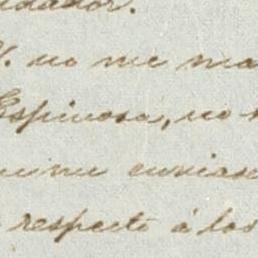 V. no me ma
Espinosa, no
me enviase
respecto á los